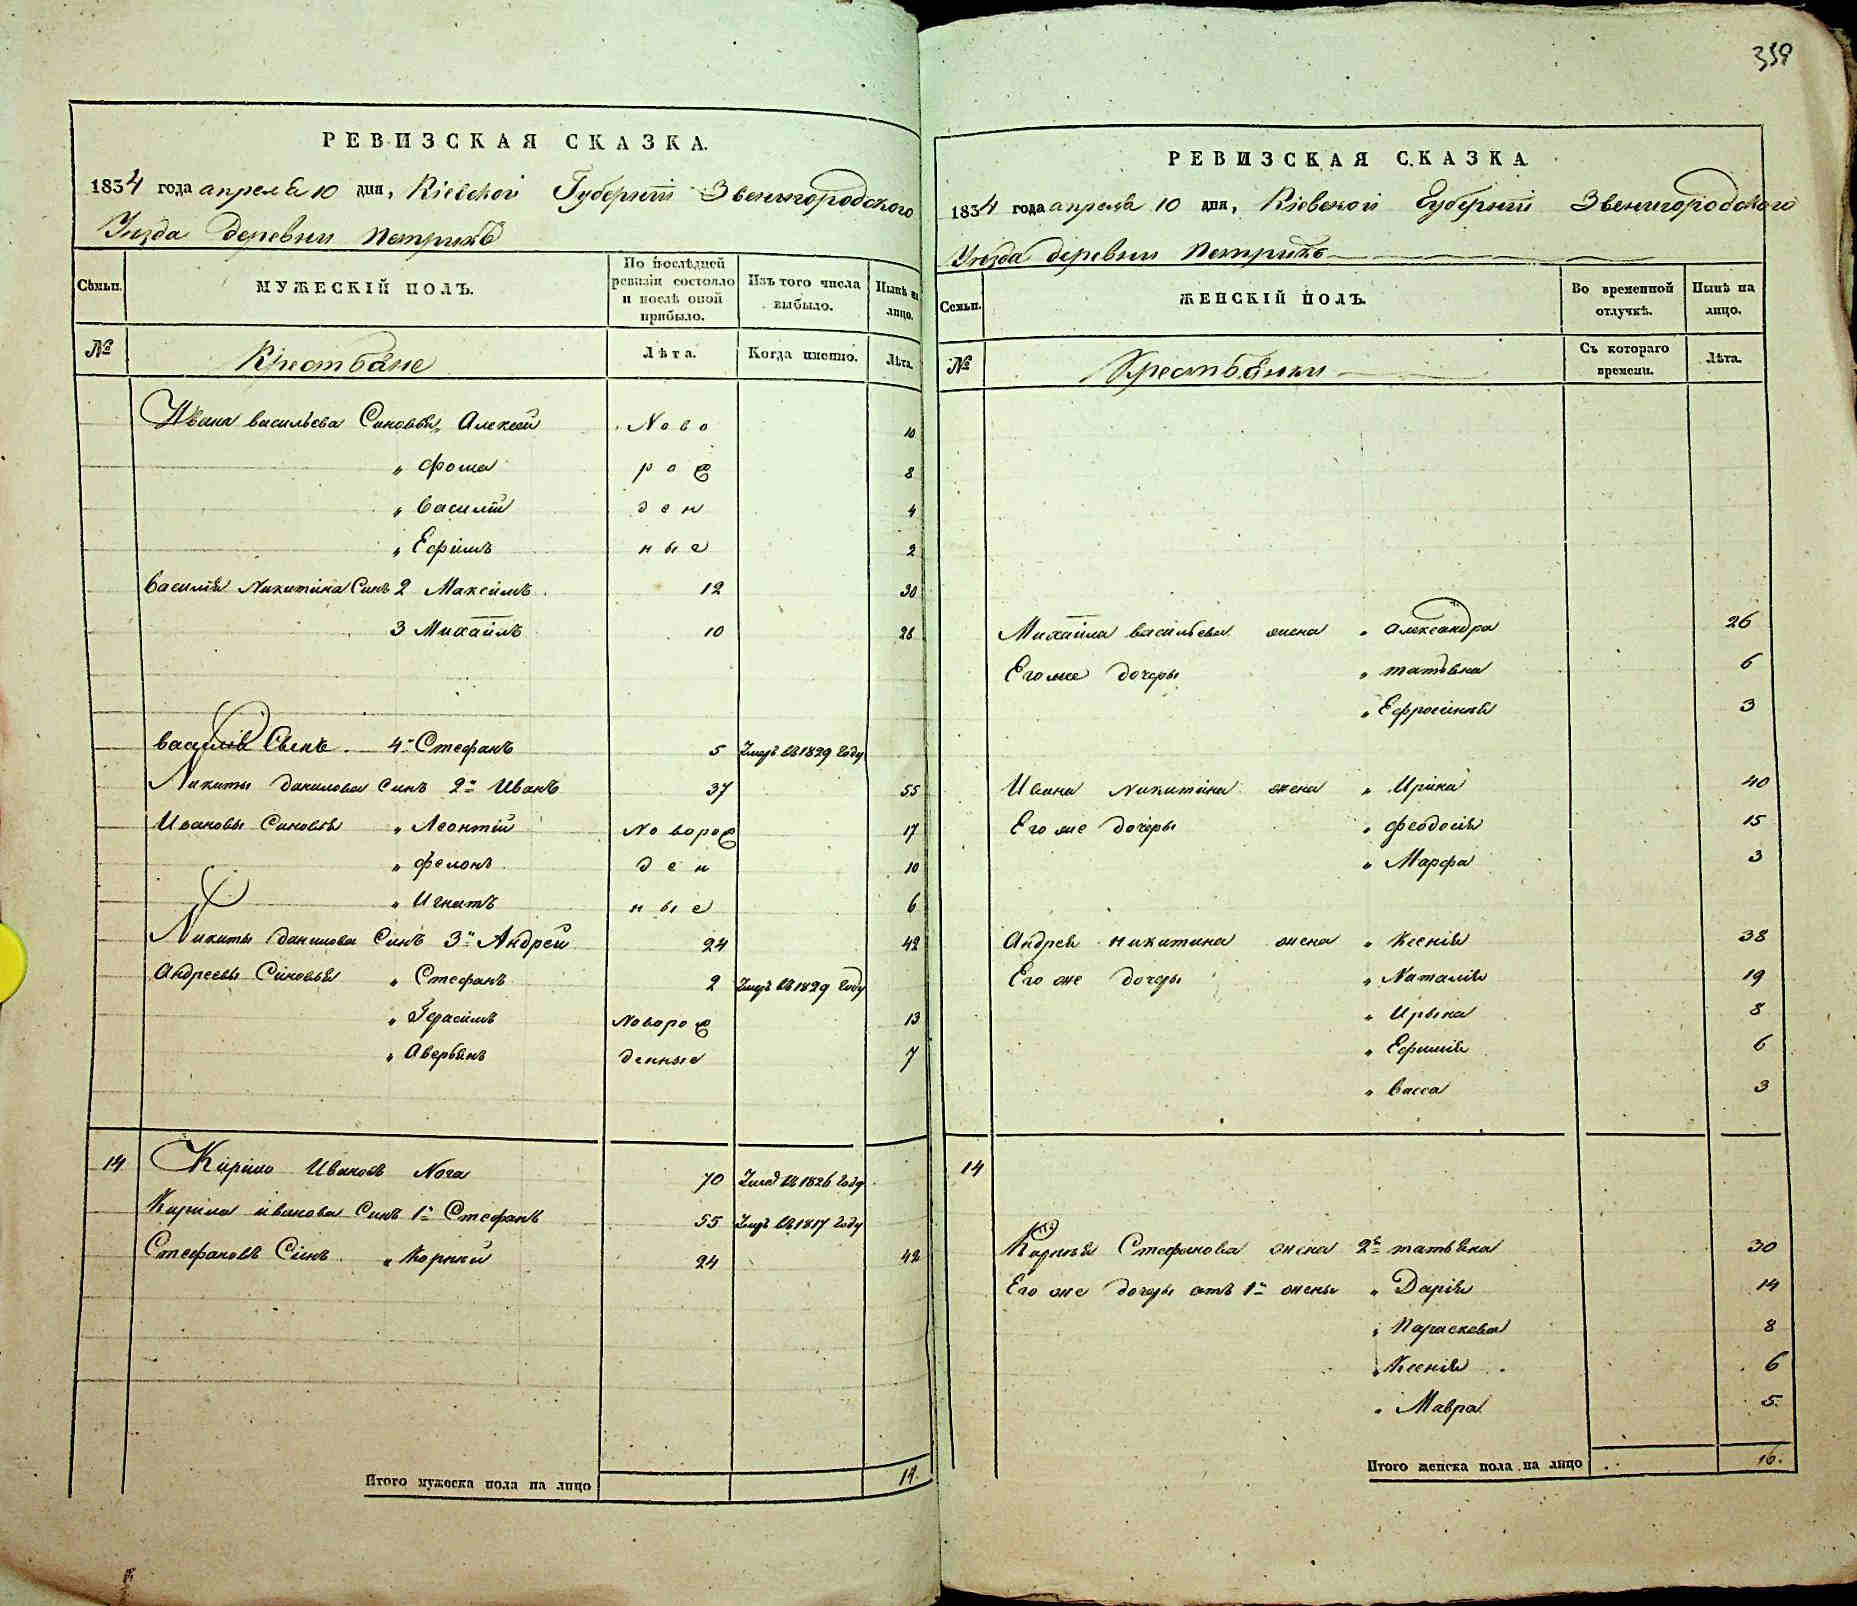 РЕВИЗСКАЯ СКАЗКА.
1834 года апреля 10 дня, Кіевской Губерніи Звенигородского
Уезда деревни Петрикъ
Сѣмьи.
МУЖЕСКІЙ ПОЛЪ.
По послѣдней ревизіи состояло и послѣ оной прибыло.
Изъ того числа выбыло.
Нынѣ на лицо.
№
Крестьяне
Лѣта.
Когда именно.
Лѣта.
Ивана васильева Сыновья, Алексей Ново 10
„ Фома рож 8
„ Василій ден 4
„ Ефимъ ные 2
Василія Никитина Синъ 2 Максимъ 12 30
3 Михаилъ 10 28
василія Синъ 4й Стефанъ 5 Умеръ въ 1829 году
Никиты данилова Синъ 2й Иванъ 37 55
Ивановы Сыновья „ ЛеонтійНоворож 17
„ Филонъ ден 10
„ Игнатъ ные 6
Никиты данилова Синъ 3й Андрей 24 42
Андреевы Сыновья „ Стефанъ 2 Умеръ въ 1829 году
„ Герасимъ Новорож 13
„ Аверьянъ денные 7
14 Кирило Ивановъ Нога 70 Умеръ въ 1826 году
Кирила иванова Синъ 1й Стефанъ 55 Умеръ въ 1817 году
Стефановъ Синъ „ Корнѣй 24 42
Итого мужеска пола на лицо 14.
359
РЕВИЗСКАЯ СКАЗКА
1834 года апреля 10 дня, Кіевской Губерніи Звенигородского
Уезда деревни Петрикъ
Семьи.
ЖЕНСКІЙ ПОЛЪ.
Во временной отлучкѣ.
Нынѣ на лицо.
№
Крестьянки
Съ котораго времени.
Лѣта.
Михайла васильева жена „ александра 26
Его же дочеры „ татьяна 6
„ Ефросинія 3
Ивана Никитина жена „ Ирина 40
Его же дочеры „ феодосія 15
„ Марфа 3
Андрея никитина жена „ Ксенія 38
Его же дочеры „ Наталія 19
„ Ирына 8
„ Ефимія 6
„ васса 3
14
Корнѣя Стефанова жена 2я татьяна 30
Его же дочеры отъ 1й жены „ Дарія 14
„ Параскева 8
„ Ксенія 6
„ Мавра 5.
Итого женска пола на лицо 16.